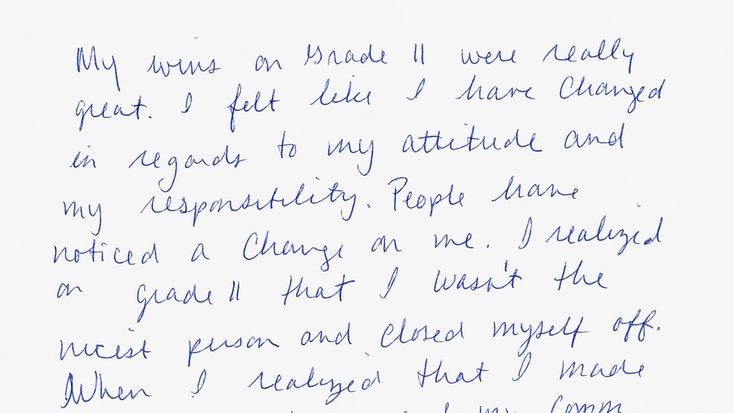 My wins on Grade 11 were really
great. I felt like I have Changed
in regards to my attitude and
my responsibility. People have
noticed a Change on me. I realized
on grade 11 that I wasn't the
nicist person and closed myself off.
When I realized that I made
my comm